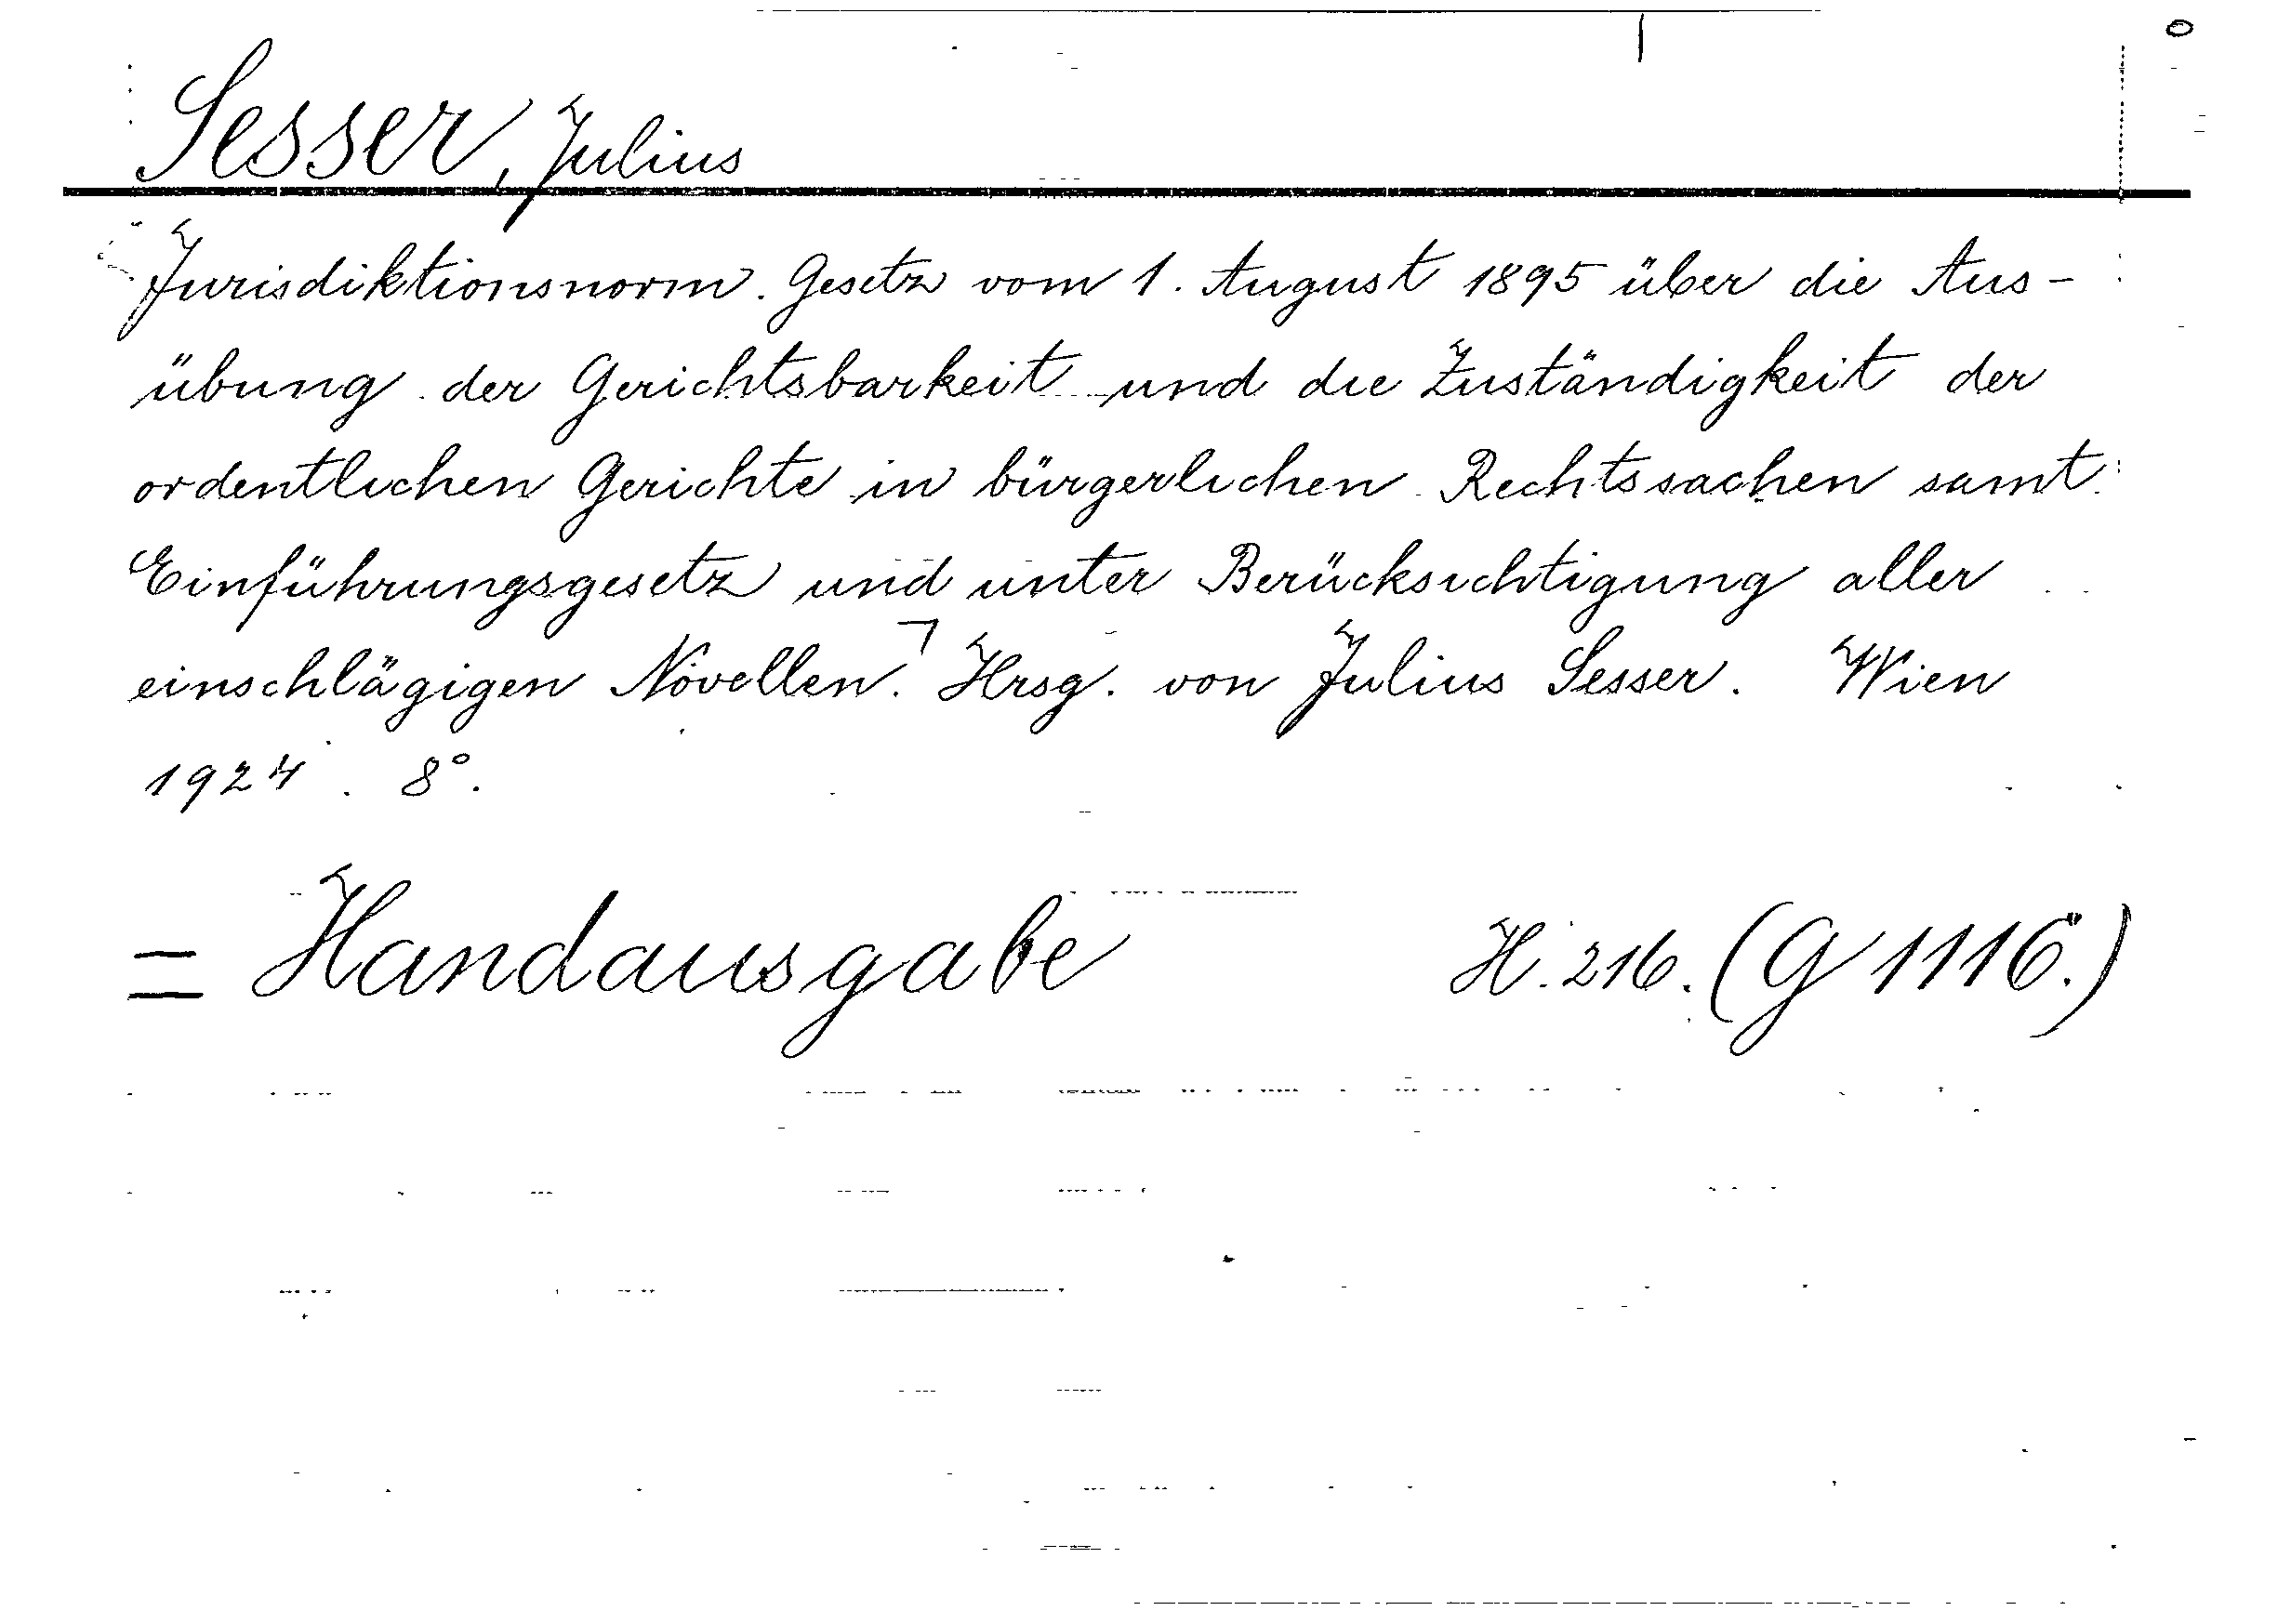 Sesser, Julius
Jurisdiktionsnorm. Gesetz vom 1. August 1895 über die Aus-
übung der Gerichtsbarkeit und die Zuständigkeit der
ordentlichen Gerichte in bürgerlichen Rechtssachen samt
Einführungsgesetz und unter Berücksichtigung aller
einschlägigen Novellen.⌝ Hrsg. von Julius Sesser. Wien
1924. 8°.
= Handausgabe H. 216. (G 1116.)